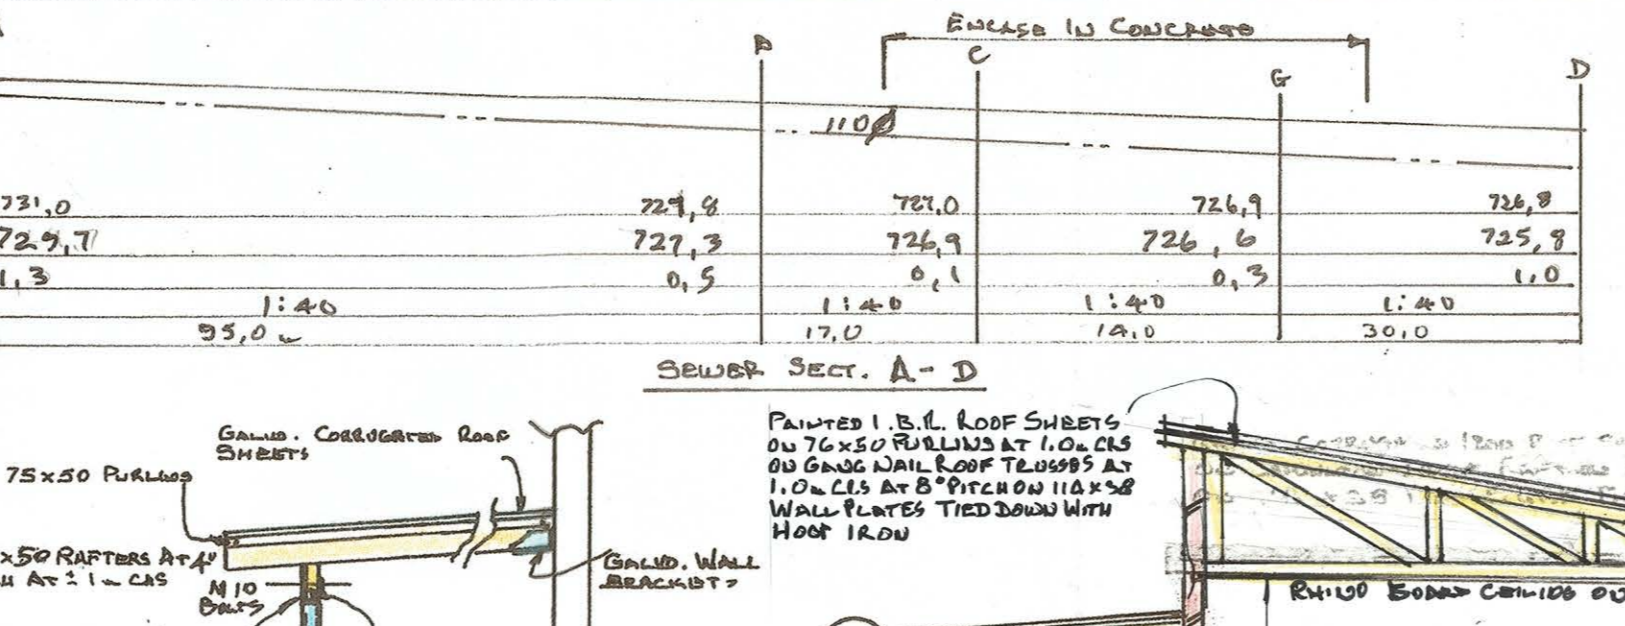 ENCASE IN CONCRETE
C
G
D
110Ø
731,0 727,8 727,0 726,9 726,8
729,7 727,3 726,9 726,6 725,8
1,3 0,5 0,1 0,3 1,0
1:40 1:40 1:40 1:40
95,0 m 17,0 14,0 30,0
SEWER SECT. A - D
GALVD. CORRUGATED ROOF
SHEETS
75x50 PURLINS
x50 RAFTERS AT 4°
AT ± 1m CRS
M10
BOLTS
GALVD. WALL
BRACKETS
PAINTED I.B.R. ROOF SHEETS
ON 76x50 PURLINS AT 1.0m CRS
ON GANG NAIL ROOF TRUSSES AT
1.0m CRS AT 8° PITCH ON 114x38
WALL PLATES TIED DOWN WITH
HOOP IRON
RHINO BOARD CEILING ON